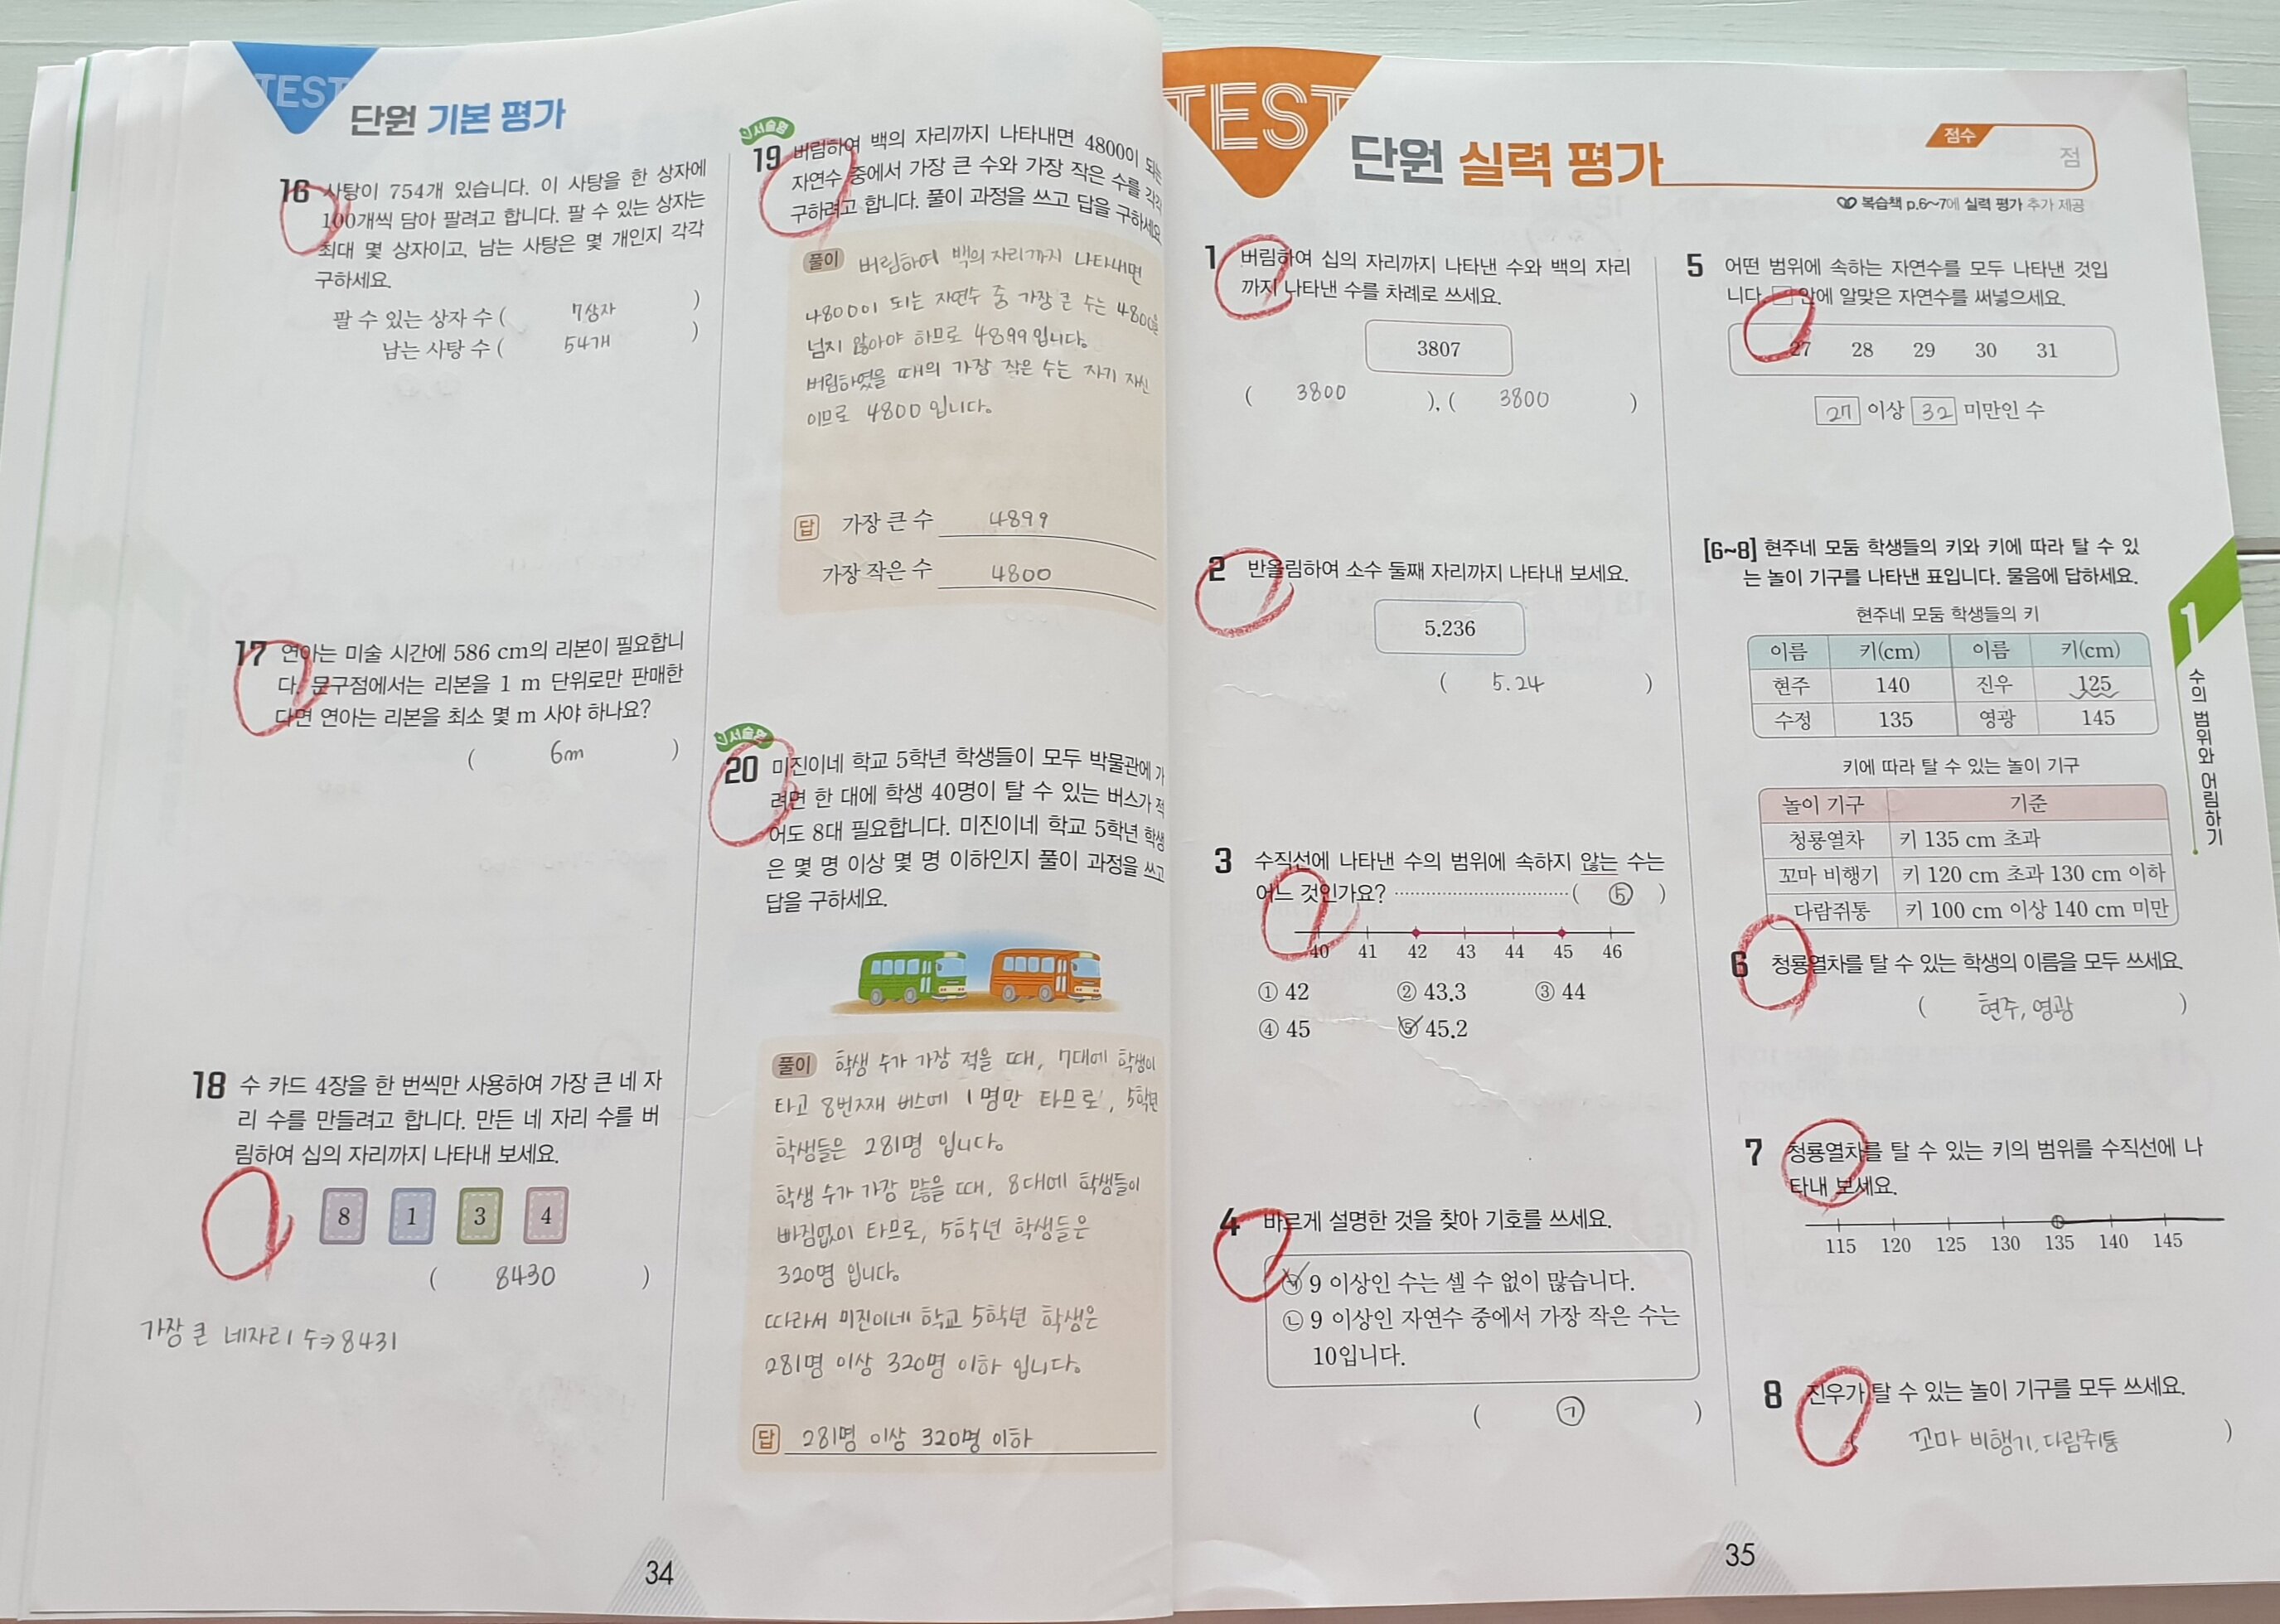 TEST
단원 기본 평가
16 사탕이 754개 있습니다. 이 사탕을 한 상자에
100개씩 담아 팔려고 합니다. 팔 수 있는 상자는
최대 몇 상자이고, 남는 사탕은 몇 개인지 각각
구하세요.
팔 수 있는 상자 수 ( 7상자 )
남는 사탕 수 ( 54개 )
17 연아는 미술 시간에 586 cm의 리본이 필요합니
다. 문구점에서는 리본을 1 m 단위로만 판매한
다면 연아는 리본을 최소 몇 m 사야 하나요?
( 6m )
18 수 카드 4장을 한 번씩만 사용하여 가장 큰 네 자
리 수를 만들려고 합니다. 만든 네 자리 수를 버
림하여 십의 자리까지 나타내 보세요.
8 1 3 4
( 8430 )
가장 큰 네자리 수⇒8431
서술형
19 버림하여 백의 자리까지 나타내면 4800이 되는
자연수 중에서 가장 큰 수와 가장 작은 수를 각각
구하려고 합니다. 풀이 과정을 쓰고 답을 구하세요.
풀이 버림하여 백의 자리까지 나타내면
4800이 되는 자연수 중 가장 큰 수는 4800을
넘지 않아야 하므로 4899입니다.
버림하였을 때의 가장 작은 수는 자기 자신
이므로 4800 입니다.
답 가장 큰 수 4899
가장 작은 수 4800
서술형
20 미진이네 학교 5학년 학생들이 모두 박물관에 가
려면 한 대에 학생 40명이 탈 수 있는 버스가 적
어도 8대 필요합니다. 미진이네 학교 5학년 학생
은 몇 명 이상 몇 명 이하인지 풀이 과정을 쓰고
답을 구하세요.
풀이 학생 수가 가장 적을 때, 7대에 학생이
타고 8번째 버스에 1명만 타므로, 5학년
학생들은 281명 입니다.
학생 수가 가장 많을 때, 8대에 학생들이
빠짐없이 타므로, 5학년 학생들은
320명 입니다.
따라서 미진이네 학교 5학년 학생은
281명 이상 320명 이하 입니다.
답 281명 이상 320명 이하
34
TEST
단원 실력 평가
점수
점
복습책 p.6~7에 실력 평가 추가 제공
1 버림하여 십의 자리까지 나타낸 수와 백의 자리
까지 나타낸 수를 차례로 쓰세요.
3807
( 3800 ), ( 3800 )
2 반올림하여 소수 둘째 자리까지 나타내 보세요.
5.236
( 5.24 )
3 수직선에 나타낸 수의 범위에 속하지 않는 수는
어느 것인가요? ································ ( ⑤ )
40 41 42 43 44 45 46
① 42 ② 43.3 ③ 44
④ 45 ⑤ 45.2
4 바르게 설명한 것을 찾아 기호를 쓰세요.
㉠ 9 이상인 수는 셀 수 없이 많습니다.
㉡ 9 이상인 자연수 중에서 가장 작은 수는
10입니다.
( ㉠ )
5 어떤 범위에 속하는 자연수를 모두 나타낸 것입
니다. □ 안에 알맞은 자연수를 써넣으세요.
27 28 29 30 31
27 이상 32 미만인 수
[6~8] 현주네 모둠 학생들의 키와 키에 따라 탈 수 있
는 놀이 기구를 나타낸 표입니다. 물음에 답하세요.
현주네 모둠 학생들의 키
이름 키(cm) 이름 키(cm)
현주 140 진우 125
수정 135 영광 145
키에 따라 탈 수 있는 놀이 기구
놀이 기구 기준
청룡열차 키 135 cm 초과
꼬마 비행기 키 120 cm 초과 130 cm 이하
다람쥐통 키 100 cm 이상 140 cm 미만
6 청룡열차를 탈 수 있는 학생의 이름을 모두 쓰세요.
( 현주, 영광 )
7 청룡열차를 탈 수 있는 키의 범위를 수직선에 나
타내 보세요.
115 120 125 130 135 140 145
8 진우가 탈 수 있는 놀이 기구를 모두 쓰세요.
꼬마 비행기, 다람쥐통 )
1
수의 범위와 어림하기
35